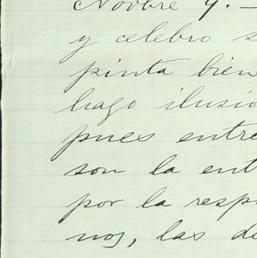 Novbre 9. —
y celebro s
pinta bien
hago ilusio
pues entre
son la ent
por la resp
nos, las de